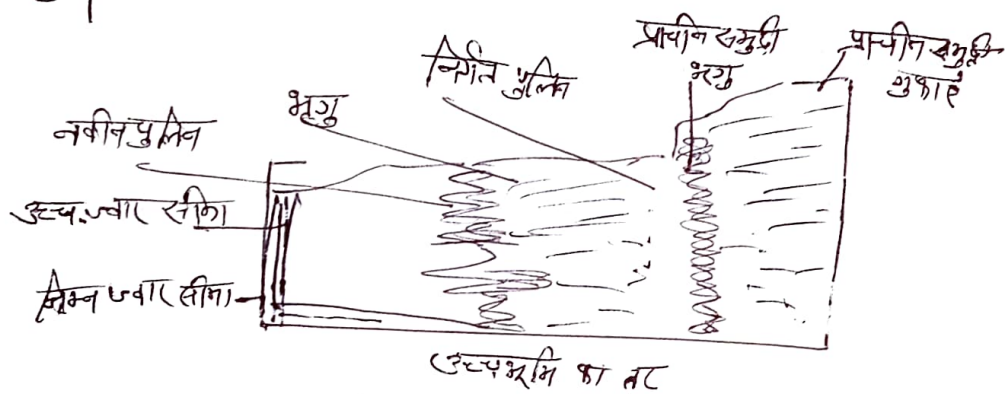 प्राचीन समुद्री
भृगु
प्राचीन समुद्री
गुफाएं
निर्गत पुलिन
भृगु
नवीन पुलिन
उच्च ज्वार सीमा
निम्न ज्वार सीमा
उच्चभूमि का तट